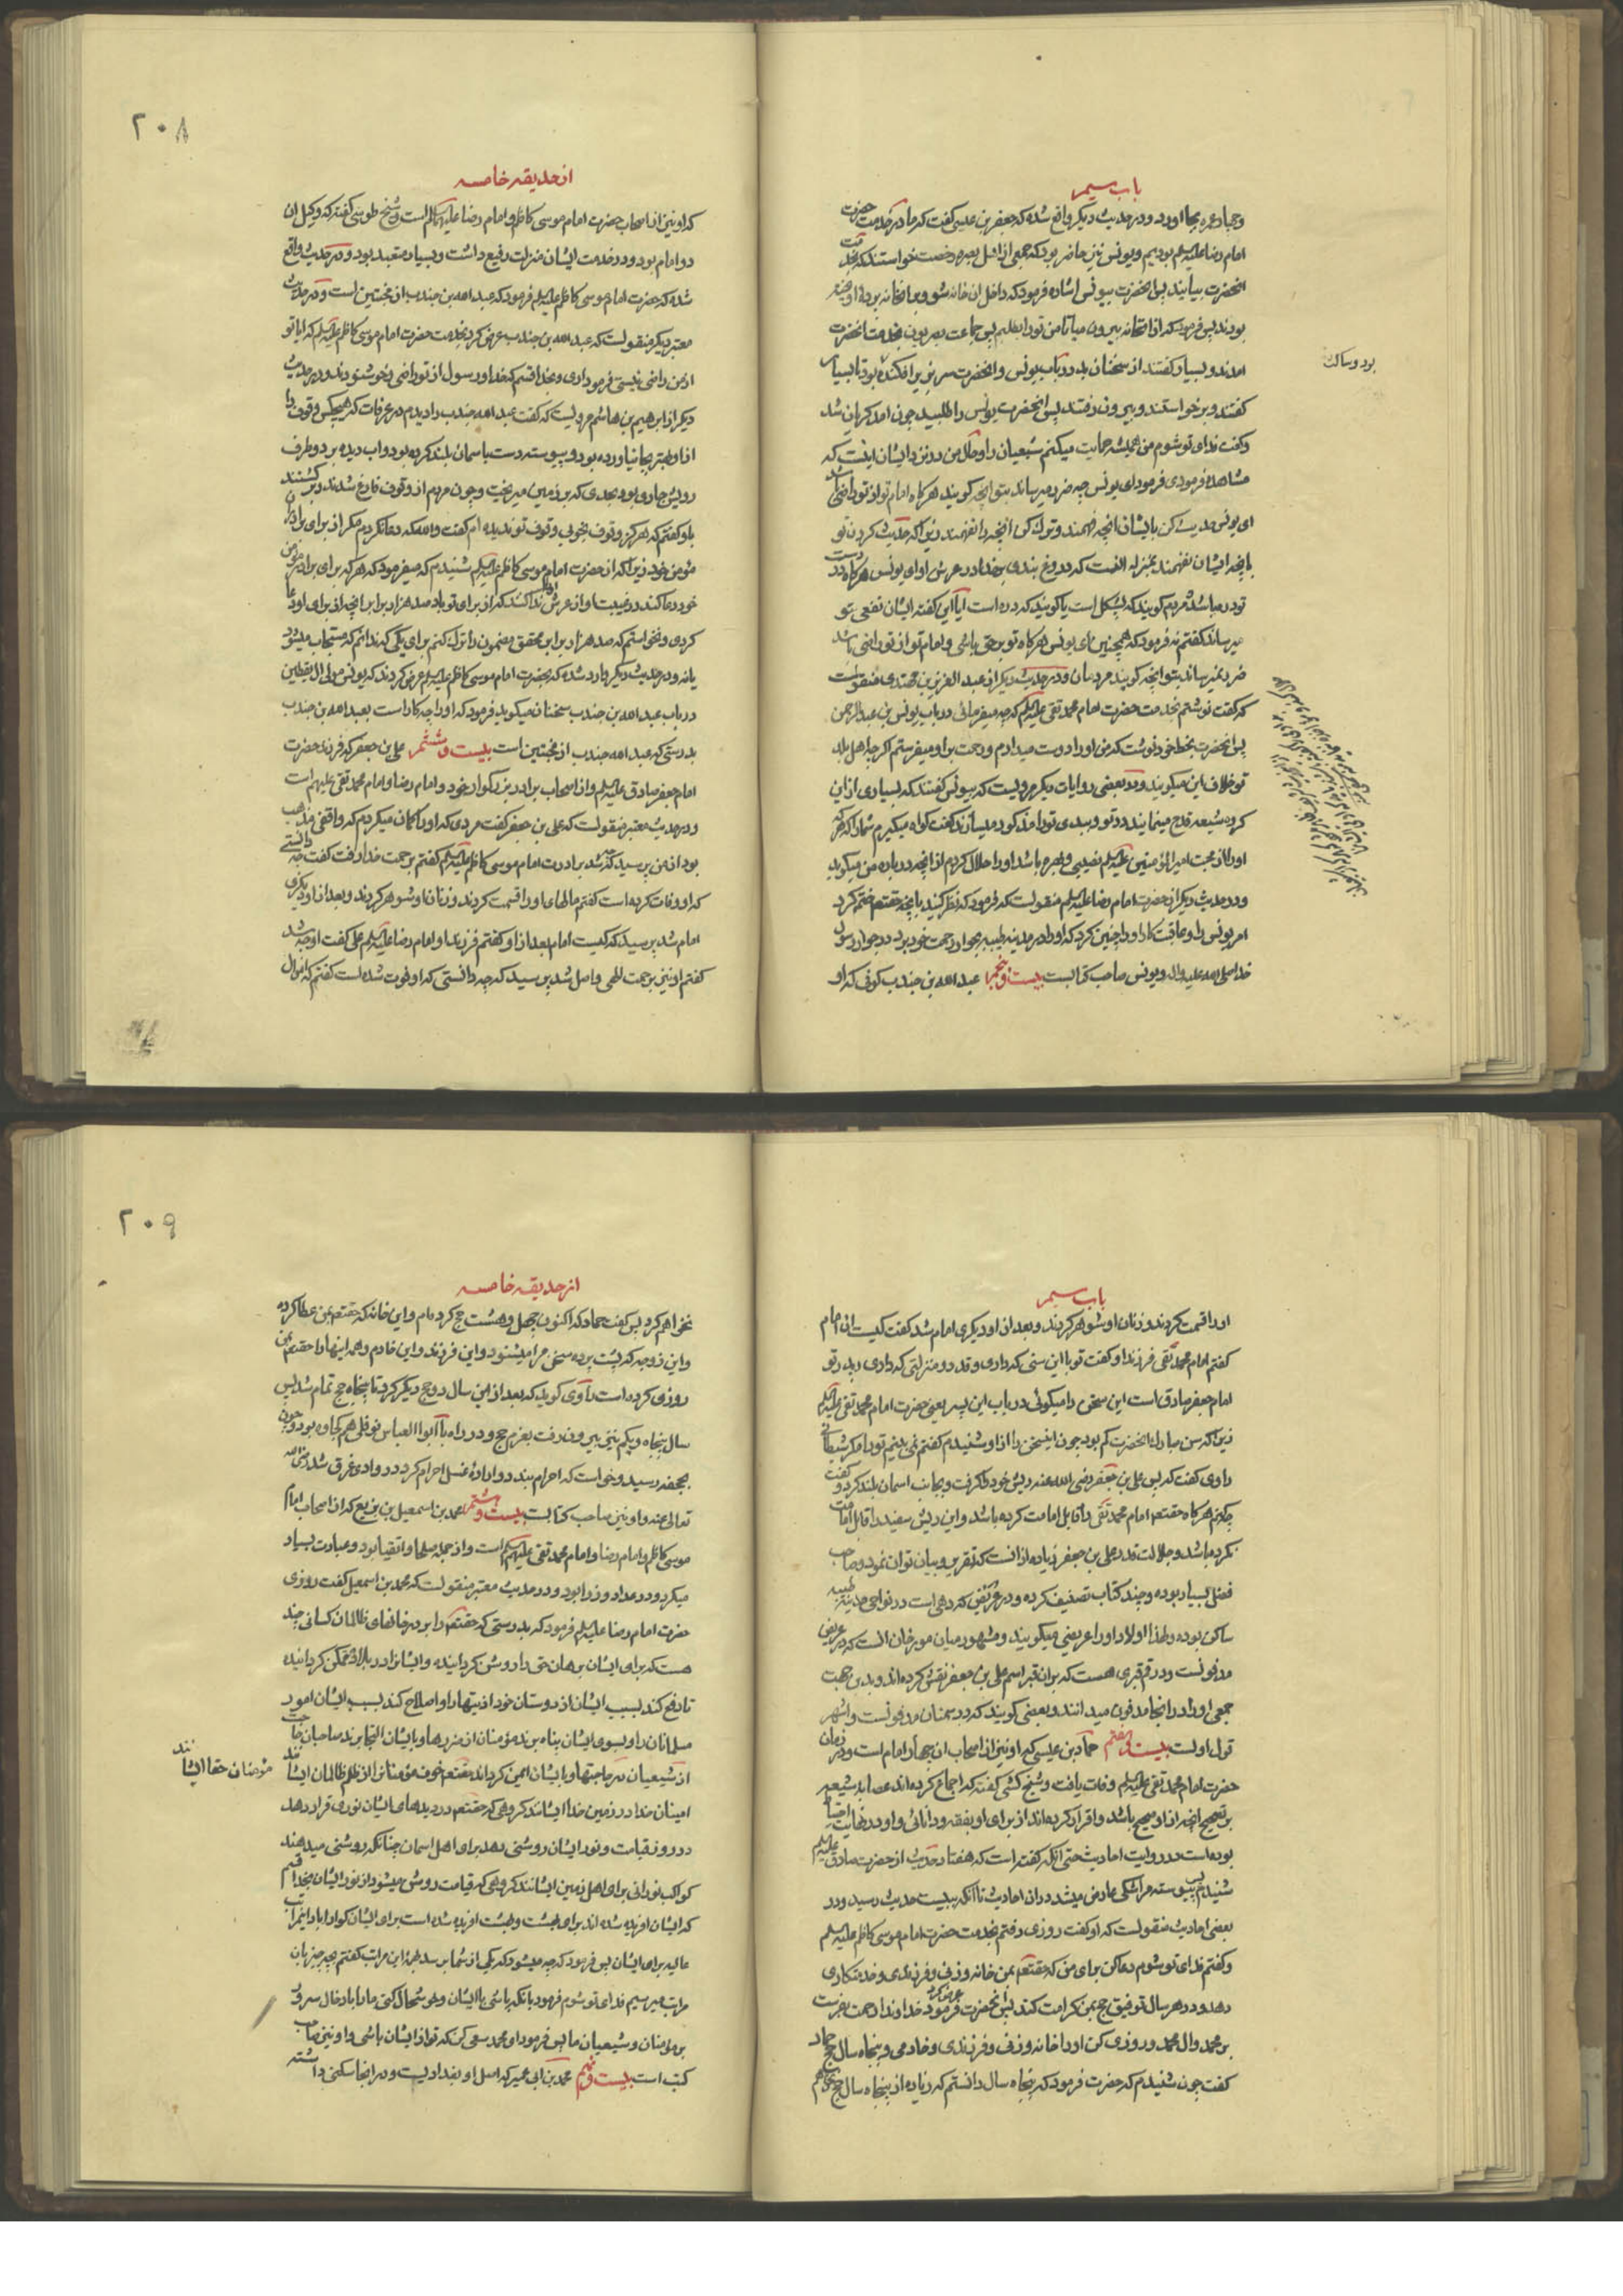 باب سیم
و حج و عمره بجا اورد و در حدیث دیگر واقع شده که جعفر بن عیسی گفت که ما در خدمت حضرت
امام رضا علیه السلم بودیم و یونس نیز حاضر بود که جمعی از اهل بصره رخصت خواستند که بخدمت
انحضرت بیایند پس انحضرت بیونس اشاره فرمود که داخل ان خانه شو و بانخانه پرده اویخته
بودند پس فرمود که از انخانه بیرون میا تا من ترا بطلبم پس جماعت بصریون بخدمت انحضرت
امدند و بسیار گفتند از سخنان بد در باب یونس و انحضرت سر بزیر افکنده بود تا بسیار
بود و ساکت
گفتند و برخواستند و بیرون رفتند پس انحضرت یونس را طلبید چون امد گریان شد
و گفت فدای تو شوم من همیشه حمایت میکنم شیعیان را و حال من در نزد ایشان اینست که
مشاهده فرمودی فرمود ای یونس چه ضرر میرساند بتو انچه گویند هر گاه امام تو از تو راضی باشد
ای یونس حدیث کن بایشان انچه فهمند و ترک کن انچه را نفهمند زیرا که حدیث کردن تو
بانچه ایشان نفهمند بمنزله انست که دروغ بندی بر خدا در عرش او ای یونس هر گاه در دست
تو در باشد و مردم گویند که پشکل است یا گویند که دره است ایا این گفته ایشان نفعی بتو
میرساند گفتم نه فرمود که همچنین ای یونس هر گاه تو بر حق باشی و امام تو از تو راضی باشد
ضرر نمیرساند بتو انچه گویند مردمان و در حدیث دیگر از عبد العزیز بن مهتدی منقولست
که گفت نوشتم بخدمت حضرت امام محمد تقی علیه السلم که چه میفرمائی در باب یونس بن عبد الرحمن
پس انحضرت بخط خود نوشت که من او را دوست میدارم و رحمت بر او میفرستم اگر چه اهل بلد
تو خلاف این میگویند و در بعضی روایات دیگر مرویست که بیونس گفتند که بسیاری از این
گروه شیعه قدح مینمایند در تو و ببدی ترا مذکور میسازند گفت گواه میگیرم شما را که هر که
او را از محبت امیر المؤمنین علیه السلم نصیبی و بهره باشد او را حلال کردم از انچه در باره من میگوید
و در حدیث دیگر از حضرت امام رضا علیه السلم منقولست که فرمود که نظر کنید بانچه حقتعالی ختم کرد
امر یونس را و عاقبت کار او را چنین کرد که او را در مدینه طیبه بجوار رحمت خود برد در جوار رسول
خدا صلی الله علیه واله و یونس صاحب کتابست بیست و پنجم عبد الله بن جندب کوفی که او
۲۰۸
از حدیقه خامسه
که او نیز از اصحاب حضرت امام موسی کاظم و امام رضا علیهما السلم است و شیخ طوسی گفته که وکیل ان
دو امام بود و در خدمت ایشان منزلت رفیع داشت و بسیار متعبد بود و در حدیث واقع
شده که حضرت امام موسی کاظم علیه السلم فرمود که عبد الله بن جندب از مخبتین است و در حدیث
معتبر دیگر منقولست که عبد الله بن جندب عرض کرد بخدمت حضرت امام موسی کاظم علیه السلم که ایا تو
از من راضی نیستی فرمود اری و بخدا قسم که خدا و رسول از تو راضی و خوشنودند و در حدیث
دیگر از ابرهیم بن هاشم مرویست که گفت عبد الله جندب را دیدم در عرفات که هیچکس وقوف را
از او بهتر بجا نیاورده بود و پیوسته دست باسمان بلند کرده بود و اب دیده بر دو طرف
رویش جاری بود بحدی که بر زمین میریخت و چون مردم از وقوف فارغ شدند و برگشتند
باو گفتم که هرگز وقوف بخوبی وقوف تو ندیده ام گفت والله که دعا نکردم مگر از برای برادران
مؤمن خود زیرا که از حضرت امام موسی کاظم علیه السلم شنیدم که میفرمود که هر که برای برادر مؤمن
خود دعا کند در غیبت او از عرش ندا کنند که از برای تو باد صد هزار برابر انچه از برای او دعا
کردی و نخواستم که صد هزار برابر محقق مضمون را ترک کنم برای یکی که ندانم که مستجاب میشود
یا نه و در حدیث دیگر وارد شده که بحضرت امام موسی کاظم علیه السلم عرض کردند که یونس مولی ال یقطین
در باب عبد الله بن جندب سخنان میگوید فرمود که او را چه کار است بعبد الله بن جندب
بدرستی که عبد الله جندب از مخبتین است بیست و ششم علی بن جعفر که فرزند حضرت
امام جعفر صادق علیه السلم و از اصحاب برادر بزرگوار خود و امام رضا و امام محمد تقی علیهم است
و در حدیث معتبر منقولست که علی بن جعفر گفت مردی که او را گمان میکردم که واقفی مذهب
بود از من پرسید که چه شد برادرت امام موسی کاظم علیه السلم گفتم برحمت خدا رفت گفت چه دانستی
که او وفات کرده است گفتم مالهای او را قسمت کردند و زنان او شوهر کردند و بعد از او دیگری
امام شد پرسید که کیست امام بعد از او گفتم فرزند او امام رضا علیه السلم علی گفت او چه شد
گفتم او نیز برحمت الهی واصل شد پرسید که چه دانستی که او فوت شده است گفتم که اموال
باب سیم
او را قسمت کردند و زنان او شوهر کردند و بعد از او دیگری امام شد گفت کیست ان امام
گفتم امام محمد تقی فرزند او گفت تو با این سنی که داری و قدر و منزلتی که داری و پدر تو
امام جعفر صادق است این سخن را میگوئی در باب این پسر یعنی حضرت امام محمد تقی علیه السلم
زیرا که سن مبارک انحضرت کم بود چون اینسخن را از او شنیدم گفتم نمی بینم ترا مگر شیطانی
راوی گفت که پس علی بن جعفر رضی الله عنه ریش خود را گرفت و بجانب اسمان بلند کرد و گفت
چکنم هر گاه حقتعالی امام محمد تقی را قابل امامت کرده باشد و این ریش سفید را قابل امامت
نکرده باشد و جلالت قدر علی بن جعفر زیاده از انست که تقریر و بیان توان نمود و صاحب
فضل بسیار بوده و چند کتاب تصنیف کرده و در عریض که دهی است در نواحی مدینه طیبه
ساکن بوده و لهذا اولاد او را عریضی میگویند و مشهور میان مورخان انست که در عریض
مدفونست و در قم قبری هست که بر ان قبر اسم علی بن جعفر نقش کرده اند و بدین جهت
جمعی او را در انجا مدفون میدانند و بعضی گویند که در سمنان مدفونست و اشهر
قول اولست بیست و هفتم حماد بن عیسی که او نیز از اصحاب ان چهار امام است و در زمان
حضرت امام محمد تقی علیه السلم وفات یافت و شیخ کشی گفته که اجماع کرده اند عصابه شیعه
بر تصحیح انچه از او صحیح باشد و اقرار کرده اند از برای او بفقه و دانائی و او در نهایت احتیاط
بوده است در روایت احادیث حتی انکه گفته است که هفتاد حدیث از حضرت صادق علیه السلم
شنیدم پس پیوسته مرا شکی عارض میشد در ان احادیث تا انکه به بیست حدیث رسید و در
بعضی احادیث منقولست که او گفت روزی رفتم بخدمت حضرت امام موسی کاظم علیه السلم
و گفتم فدای تو شوم دعا کن برای من که حقتعالی بمن خانه و زنی و فرزندی و خدمتکاری
دهد و در هر سال توفیق حج بمن کرامت کند پس انحضرت عرض کرد خداوندا رحمت بفرست
بر محمد و ال محمد و روزی کن او را خانه و زنی و فرزندی و خادمی و پنجاه سال حج حماد
گفت چون شنیدم که حضرت فرمود که پنجاه سال دانستم که زیاده از پنجاه سال حج
۲۰۹
از حدیقه خامسه
نخواهم کرد پس گفت حماد که اکنون چهل و هشت حج کرده ام و این خانه که حقتعالی بمن عطا کرده
و این زوجه که پشت پرده سخن مرا میشنود و این فرزند و این خادم و همه اینها را حقتعالی بمن
روزی کرده است راوی گوید که بعد از این سال دو حج دیگر کرد تا پنجاه حج تمام شد پس
سال پنجاه و یکم نیز بیرون رفت بعزم حج و در راه با ابو العباس نوفلی هم کجاوه بود و چون
بجحفه رسید و خواست که احرام بندد و اراده غسل احرام کرد در وادی غرق شد رضی الله
تعالی عنه و او نیز صاحب کتابست بیست و هشتم محمد بن اسمعیل بن بزیع که از اصحاب امام
موسی کاظم و امام رضا و امام محمد تقی علیهم السلم است و از جمله صلحا و اتقیا بود و عبادت بسیار
میکرد و در عداد وزرا بود و در حدیث معتبر منقولست که محمد بن اسمعیل گفت روزی
حضرت امام رضا علیه السلم فرمود که بدرستی که حقتعالی را بر در خانهای ظالمان کسانی چند
هست که برای ایشان برهان حق را روشن گردانیده و ایشانرا در بلاد متمکن گردانیده
تا دفع کند بسبب ایشان از دوستان خود اذیتها را و اصلاح کند بسبب ایشان امور
مسلمانان را و بسوی ایشان پناه برند مؤمنان از ضررها و بایشان التجا برند صاحبان حاجت
از شیعیان در حاجتها و بایشان ایمن گرداند حقتعالی خوف مؤمنانرا از ظلم ظالمان ایشانند
مؤمنان حقا ایشانند
امینان خدا در زمین خدا ایشانند گروهی که حقتعالی در دیدهای ایشان نوری قرار دهد
در روز قیامت و نور ایشان روشنی دهد برای اهل اسمان چنانکه روشنی میدهند
کواکب نورانی برای اهل زمین ایشانند گروهی که قیامت روشن میشود از نور ایشان بخدا قسم
که ایشان افریده شده اند برای بهشت و بهشت افریده شده است برای ایشان گوارا باد این مراتب
عالیه برای ایشان پس فرمود که چه میشود که یکی از شما برسد بهمه این مراتب گفتم بچه چیز بان
مراتب میرسیم فدای تو شوم فرمود بانکه باشی با ایشان و خوشحال کنی ما را بادخال سرور
بر مؤمنان و شیعیان ما پس فرمود ای محمد سعی کن که تو از ایشان باشی و او نیز صاحب
کتب است بیست و نهم محمد بن ابی عمیر که اصل او بغدادیست و در انجا سکنی داشته